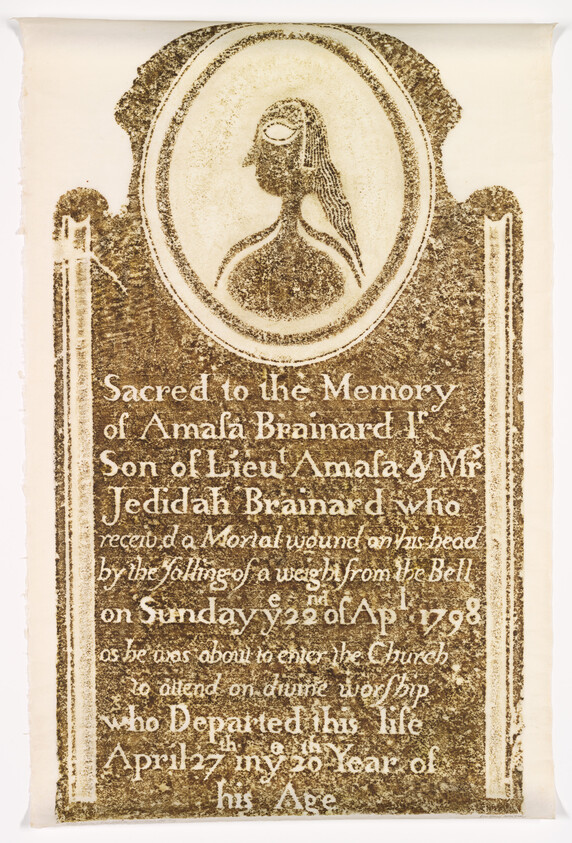 Sacred to the Memory
of Amaſa Brainard Jr
Son of Lieut Amaſa & Mrs
Jedidah Brainard who
receiv,d a Mortal wound on his head
by the falling of a weight from the Bell
on Sunday ye 22nd of Apl 1798
as he was about to enter the Church
to attend on divine worſhip
who Departed this life
April 27th in ye 20th Year of
his Age